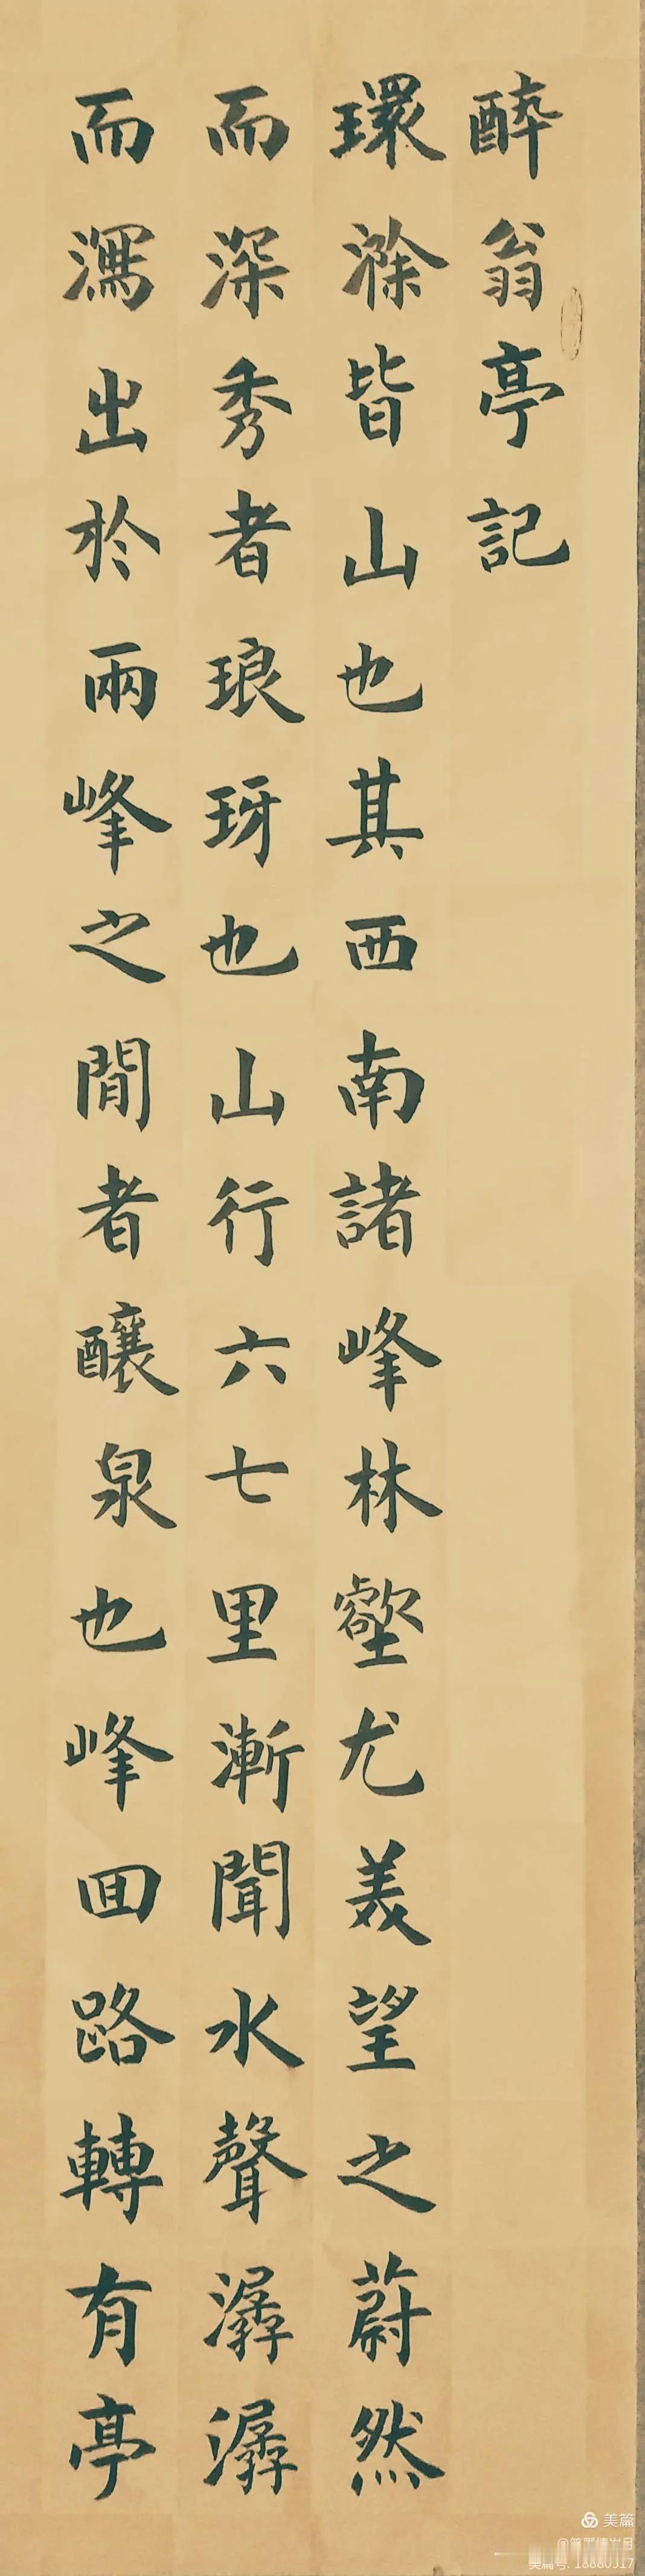 醉翁亭記
環滁皆山也其西南諸峰林壑尤美望之蔚然
而深秀者琅玡也山行六七里漸聞水聲潺潺
而瀉出於兩峰之間者釀泉也峰回路轉有亭
美篇